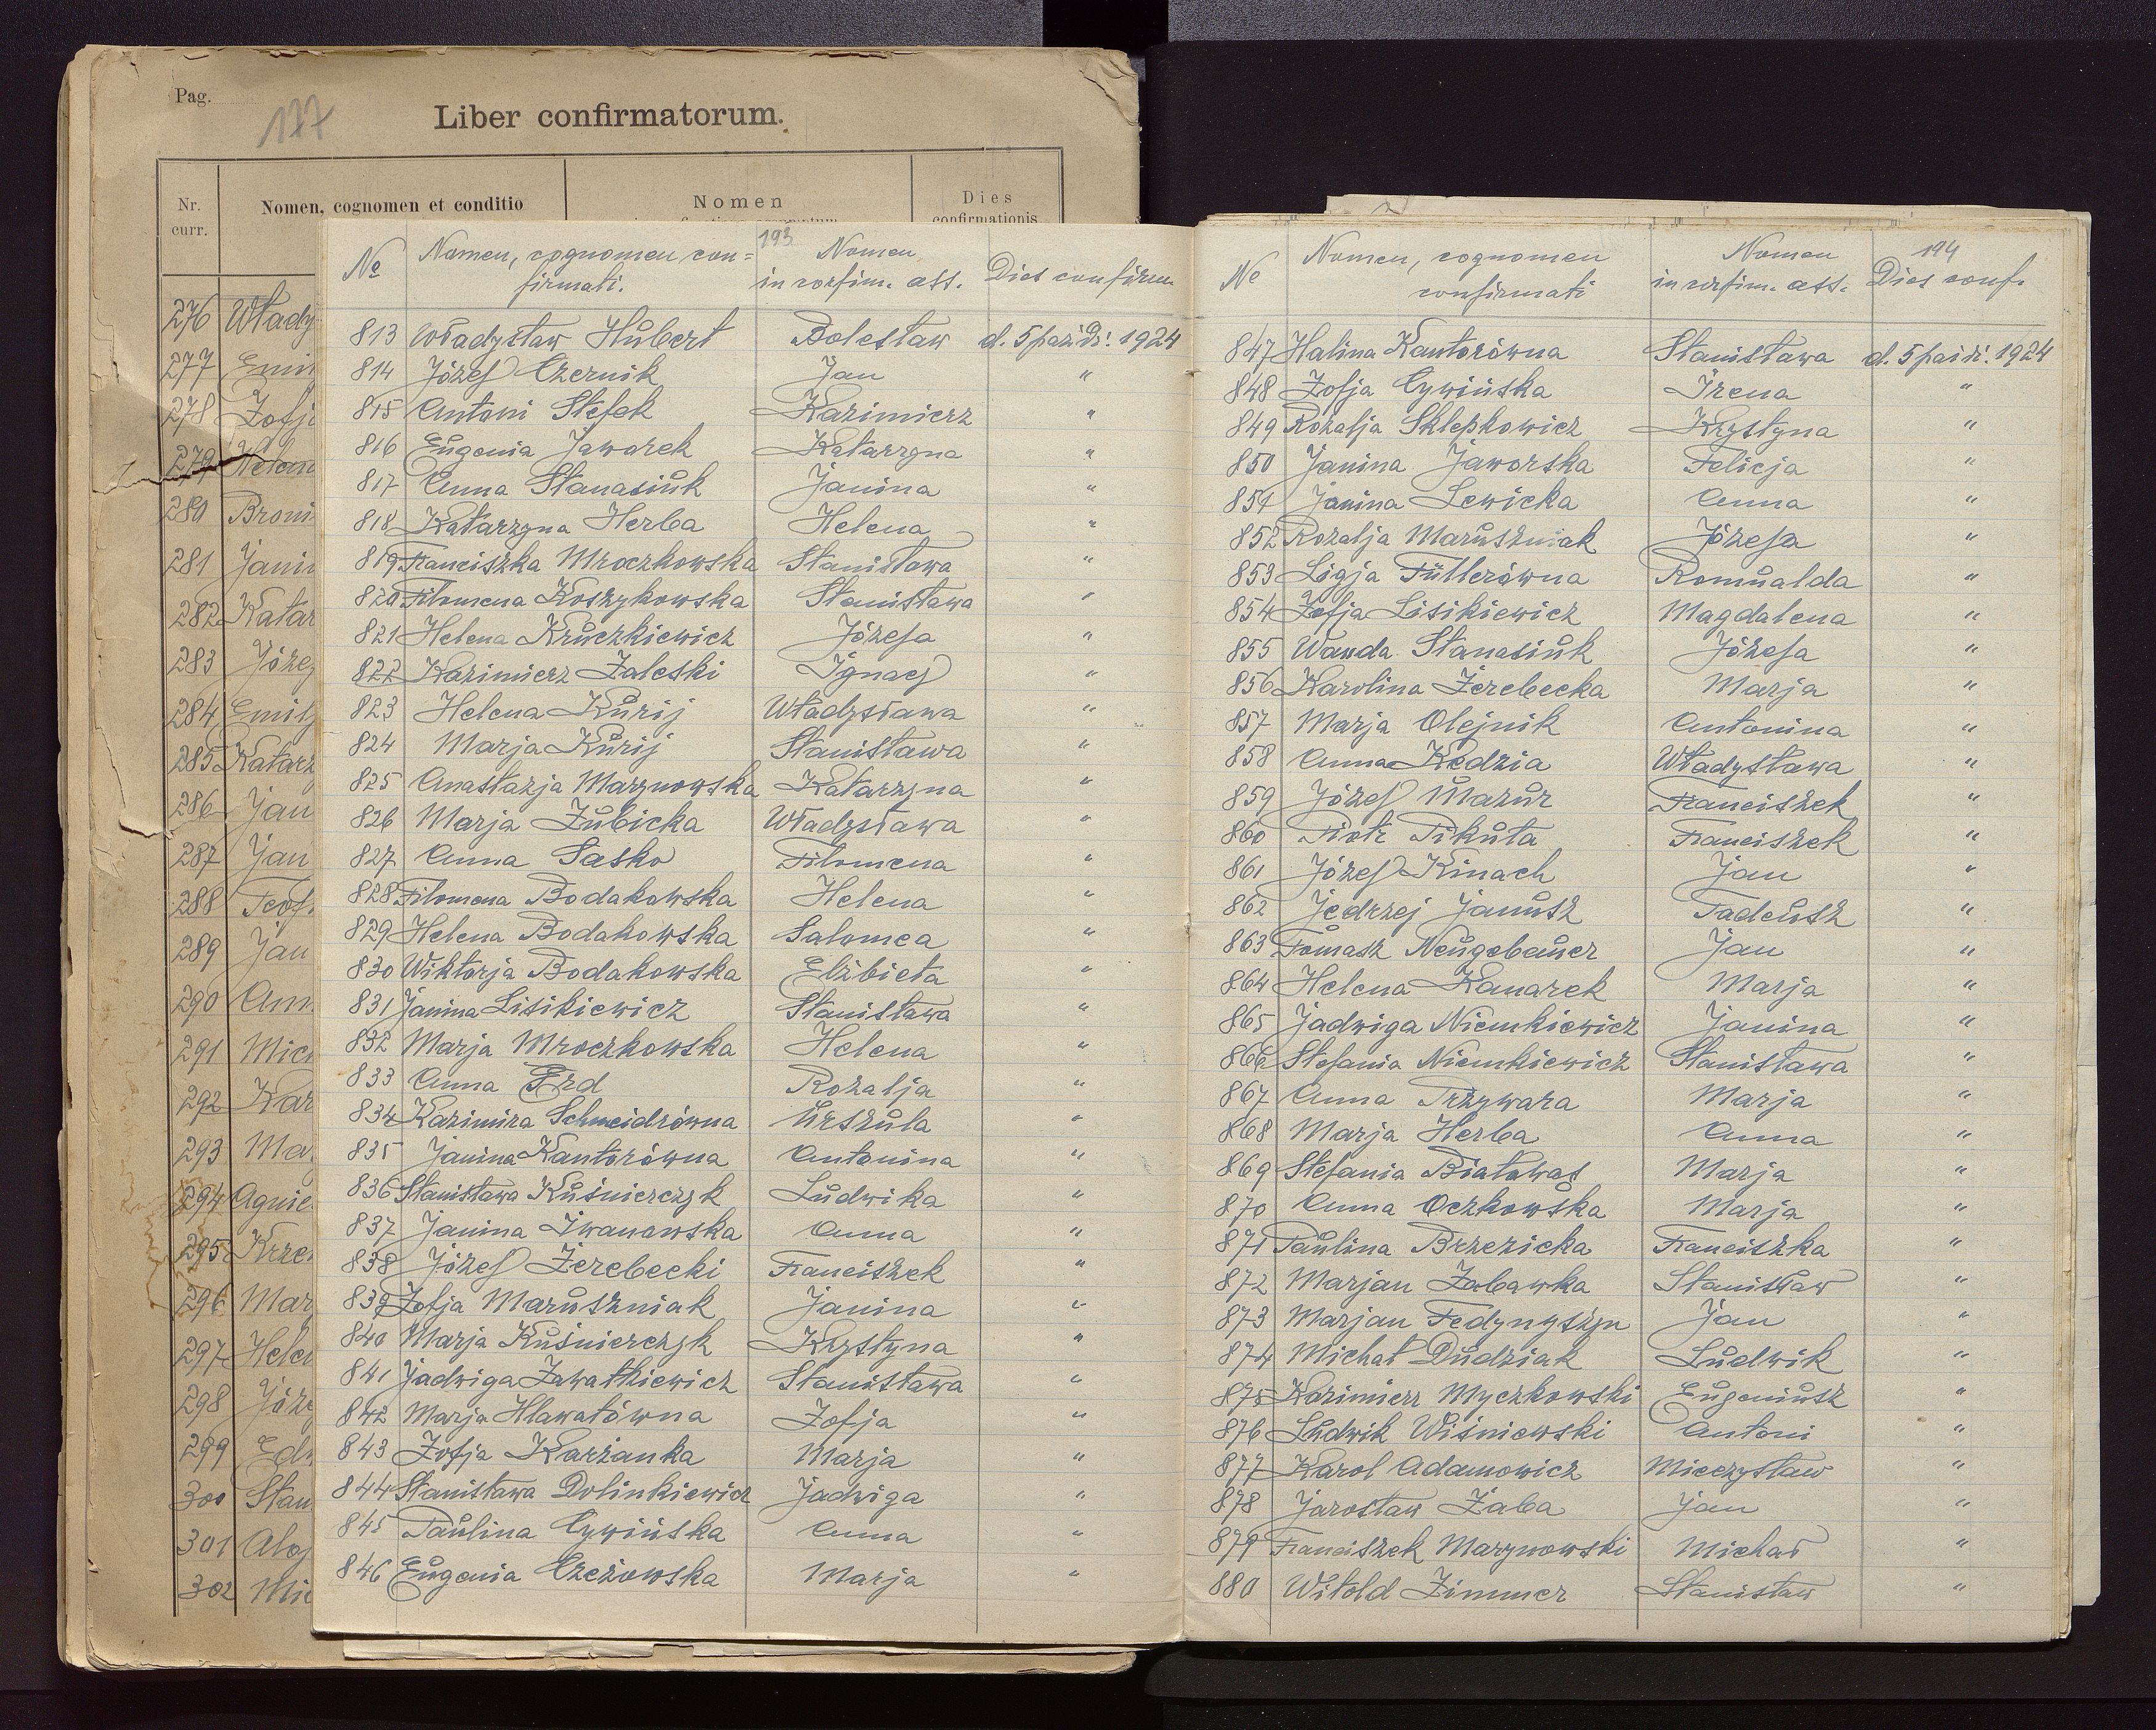 Pag.
177
Liber confirmatorum.
Nr. curr.
Nomen, cognomen et conditio
Nomen
Dies
confirmationis
276 Włady
277 Emi
278 Zofj
279 Helen
280 Broni
281 Jani
282 Katar
283 Józe
284 Emil
285 Katarz
286 Jan
287 Jan
288 Teof
289 Jan
290 Ann
291 Mic
292 Kar
293 Mar
294 Agnie
295 Krze
296 Mar
297 Hele
298 Józe
299 Edw
300 Stan
301 Aloj
302 Mic
193
№ Nomen, cognomen con=firmati. Nomen in confirm. ass. Dies confirm.
813 Władysław Hubert Bolesław d. 5 paźdź. 1924
814 Józef Czernik Jan "
815 Antoni Stefak Kazimierz "
816 Eugenia Jaworek Katarzyna "
817 Anna Stanasiuk Janina "
818 Katarzyna Herba Helena "
819 Franciszka Mroczkowska Stanisława "
820 Filomena Koszykowska Stanisława "
821 Helena Kruczkiewicz Józefa "
822 Kazimierz Zaleski Ignacy "
823 Helena Kurij Władysława "
824 Marja Kurij Stanisława "
825 Anastazja Marynowska Katarzyna "
826 Marja Zubicka Władysława "
827 Anna Sasko Filomena "
828 Filomena Bodakowska Helena "
829 Helena Bodakowska Salomea "
830 Wiktorja Bodakowska Elżbieta "
831 Janina Lisikiewicz Stanisława "
832 Marja Mroczkowska Helena "
833 Anna Erd Rozalja "
834 Kazimira Schneidrówna Urszula "
835 Janina Kantorówna Antonina "
836 Stanisława Kuśnierczyk Ludwika "
837 Janina Iwanowska Anna "
838 Józef Żerebecki Franciszek "
839 Zofja Maruszniak Janina "
840 Marja Kuśnierczyk Krystyna "
841 Jadwiga Zawatkiewicz Stanisława "
842 Marja Hlawatówna Zofja "
843 Zofja Karżanka Marja "
844 Stanisława Dolinkiewicz Jadwiga "
845 Paulina Cywińska Anna "
846 Eugenia Czeżowska Marja "
194
№ Nomen, cognomen confirmati Nomen in confirm. ass. Dies conf.
847 Halina Kantorówna Stanisława d. 5 paźdź. 1924
848 Zofja Cywińska Irena "
849 Rozalja Sklepkowicz Krystyna "
850 Janina Jaworska Felicja "
851 Janina Lewicka Anna "
852 Rozalja Maruszniak Józefa "
853 Ligja Füllerówna Romualda "
854 Zofja Lisikiewicz Magdalena "
855 Wanda Stanasiuk Józefa "
856 Karolina Żerebecka Marja "
857 Marja Olejnik Antonina "
858 Anna Kedzia Władysława "
859 Józef Mazur Franciszek "
860 Piotr Pikuta Franciszek "
861 Józef Kinach Jan "
862 Jedrzej Janusz Tadeusz "
863 Tomasz Neugebauer Jan "
864 Helena Kanarek Marja "
865 Jadwiga Niemkiewicz Janina "
866 Stefania Niemkiewicz Stanisława "
867 Anna Przywara Marja "
868 Marja Herba Anna "
869 Stefania Białowąs Marja "
870 Anna Oczkowska Marja "
871 Paulina Brzezicka Franciszka "
872 Marjan Zabawka Stanisław "
873 Marjan Fedynyszyn Jan "
874 Michał Dudziak Ludwik "
875 Kazimierz Myczkowski Eugeniusz "
876 Ludwik Wiśniewski Antoni "
877 Karol Adamowicz Mieczysław "
878 Jarosław Żaba Jan "
879 Franciszek Marynowski Michał "
880 Witold Zimmer Stanisław "